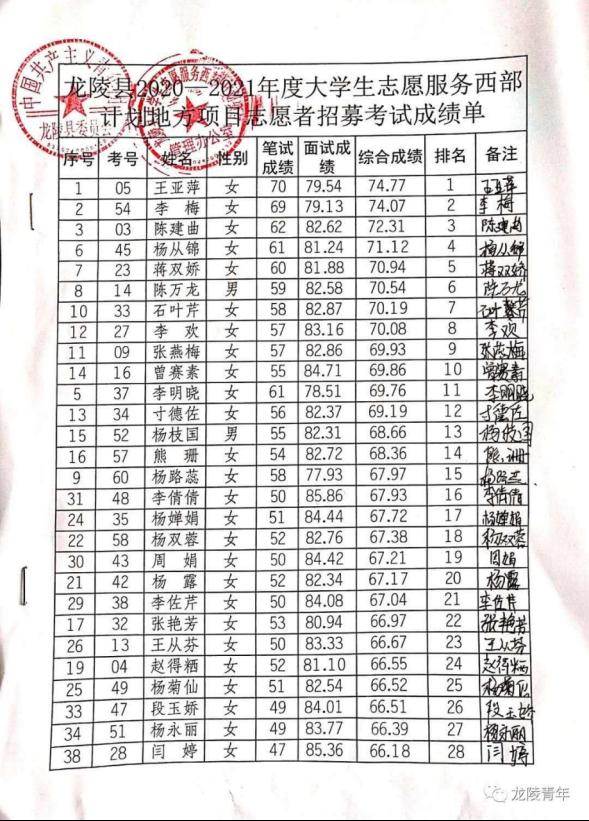 龙陵县2020—2021年度大学生志愿服务西部
计划地方项目志愿者招募考试成绩单
序号 考号 姓名 性别 笔试成绩 面试成绩 综合成绩 排名 备注
1 05 王亚萍 女 70 79.54 74.77 1 王亚萍
2 54 李梅 女 69 79.13 74.07 2 李梅
3 03 陈建曲 女 62 82.62 72.31 3 陈建曲
6 45 杨从锦 女 61 81.24 71.12 4 杨从锦
7 23 蒋双娇 女 60 81.88 70.94 5 蒋双娇
8 14 陈万龙 男 59 82.58 70.54 6 陈万龙
10 33 石叶芹 女 58 82.87 70.19 7 石叶芹
12 27 李欢 女 57 83.16 70.08 8 李欢
11 09 张燕梅 女 57 82.86 69.93 9 张燕梅
14 16 曾赛素 女 55 84.71 69.86 10 曾赛素
5 37 李明晓 女 61 78.51 69.76 11 李明晓
13 34 寸德佐 女 56 82.37 69.19 12 寸德佐
15 52 杨枝国 男 55 82.31 68.66 13 杨枝国
16 57 熊珊 女 54 82.72 68.36 14 熊珊
9 60 杨路蕊 女 58 77.93 67.97 15 杨路蕊
31 48 李倩倩 女 50 85.86 67.93 16 李倩倩
24 35 杨婵娟 女 51 84.44 67.72 17 杨婵娟
22 58 杨双蓉 女 52 82.76 67.38 18 杨双蓉
30 43 周娟 女 50 84.42 67.21 19 周娟
21 42 杨露 女 52 82.34 67.17 20 杨露
29 38 李佐芹 女 50 84.08 67.04 21 李佐芹
17 32 张艳芳 女 53 80.94 66.97 22 张艳芳
26 13 王从芬 女 50 83.33 66.67 23 王从芬
19 04 赵得粞 女 52 81.10 66.55 24 赵得粞
25 49 杨菊仙 女 51 82.54 66.52 25 杨菊仙
33 47 段玉娇 女 49 84.01 66.51 26 段玉娇
34 51 杨永丽 女 49 83.77 66.39 27 杨永丽
38 28 闫婷 女 47 85.36 66.18 28 闫婷
龙陵县委员会
管理办公室
龙陵青年